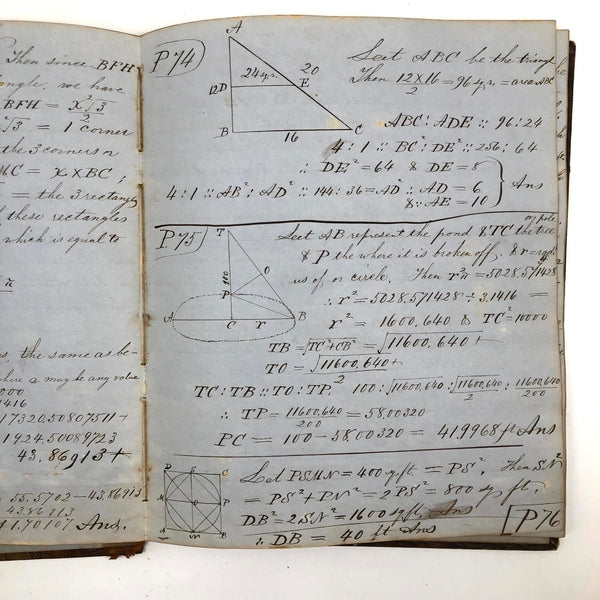 Then since BFH
angle, we have
BFH = X√3/2
√3 = 1 corner
the 3 corners or
MC = X×BC;
= the 3 rectangles
these rectangles
which is equal to
s, the same as be-
where a may be any value
1416
17320,50807511+
1924,50089723
43.86913+
= 55.5702-43.86913
43.86913
11.70107 Ans.
P74
A
24 sq. r.
20
12
D
E
B
16
C
Let ABC be the triangl
Then 12×16/2 = 96 sq. r. = area ABC
ABC : ADE :: 96 : 24
4 : 1 :: BC² : DE² :: 256 : 64
∴ DE² = 64 & DE = 8
4 : 1 :: AB² : AD² :: 144 : 36 = AD² ∴ AD = 6
& ∴ AE = 10
Ans
P75
T
100
O
P
A
C
r
B
or pole
Let AB represent the pond & TC the tree
& P the where it is broken off, & r = radi
us of circle. Then r²π = 5028.571428
∴ r² = 5028.571428 ÷ 3.1416 =
r² = 1600,640 & TC² = 10000
TB = √TC²+CB² = √11600,640+
TO = √11600,640+
2
TC : TB :: TO : TP. 100 : √11600,640 : √11600,640/2 : 11600,640/200
∴ TP = 11600,640/200 = 58,00320
PC = 100 - 58.00320 = 41,9968 ft Ans
D
S
C
M
O
P
A
N
B
Let PSMN = 400 sq ft = PS². Then SN²
= PS² + PN² = 2PS² = 800 sq ft.
DB² = 2SN² = 1600 sq ft Ans
∴ DB = 40 ft Ans
P76